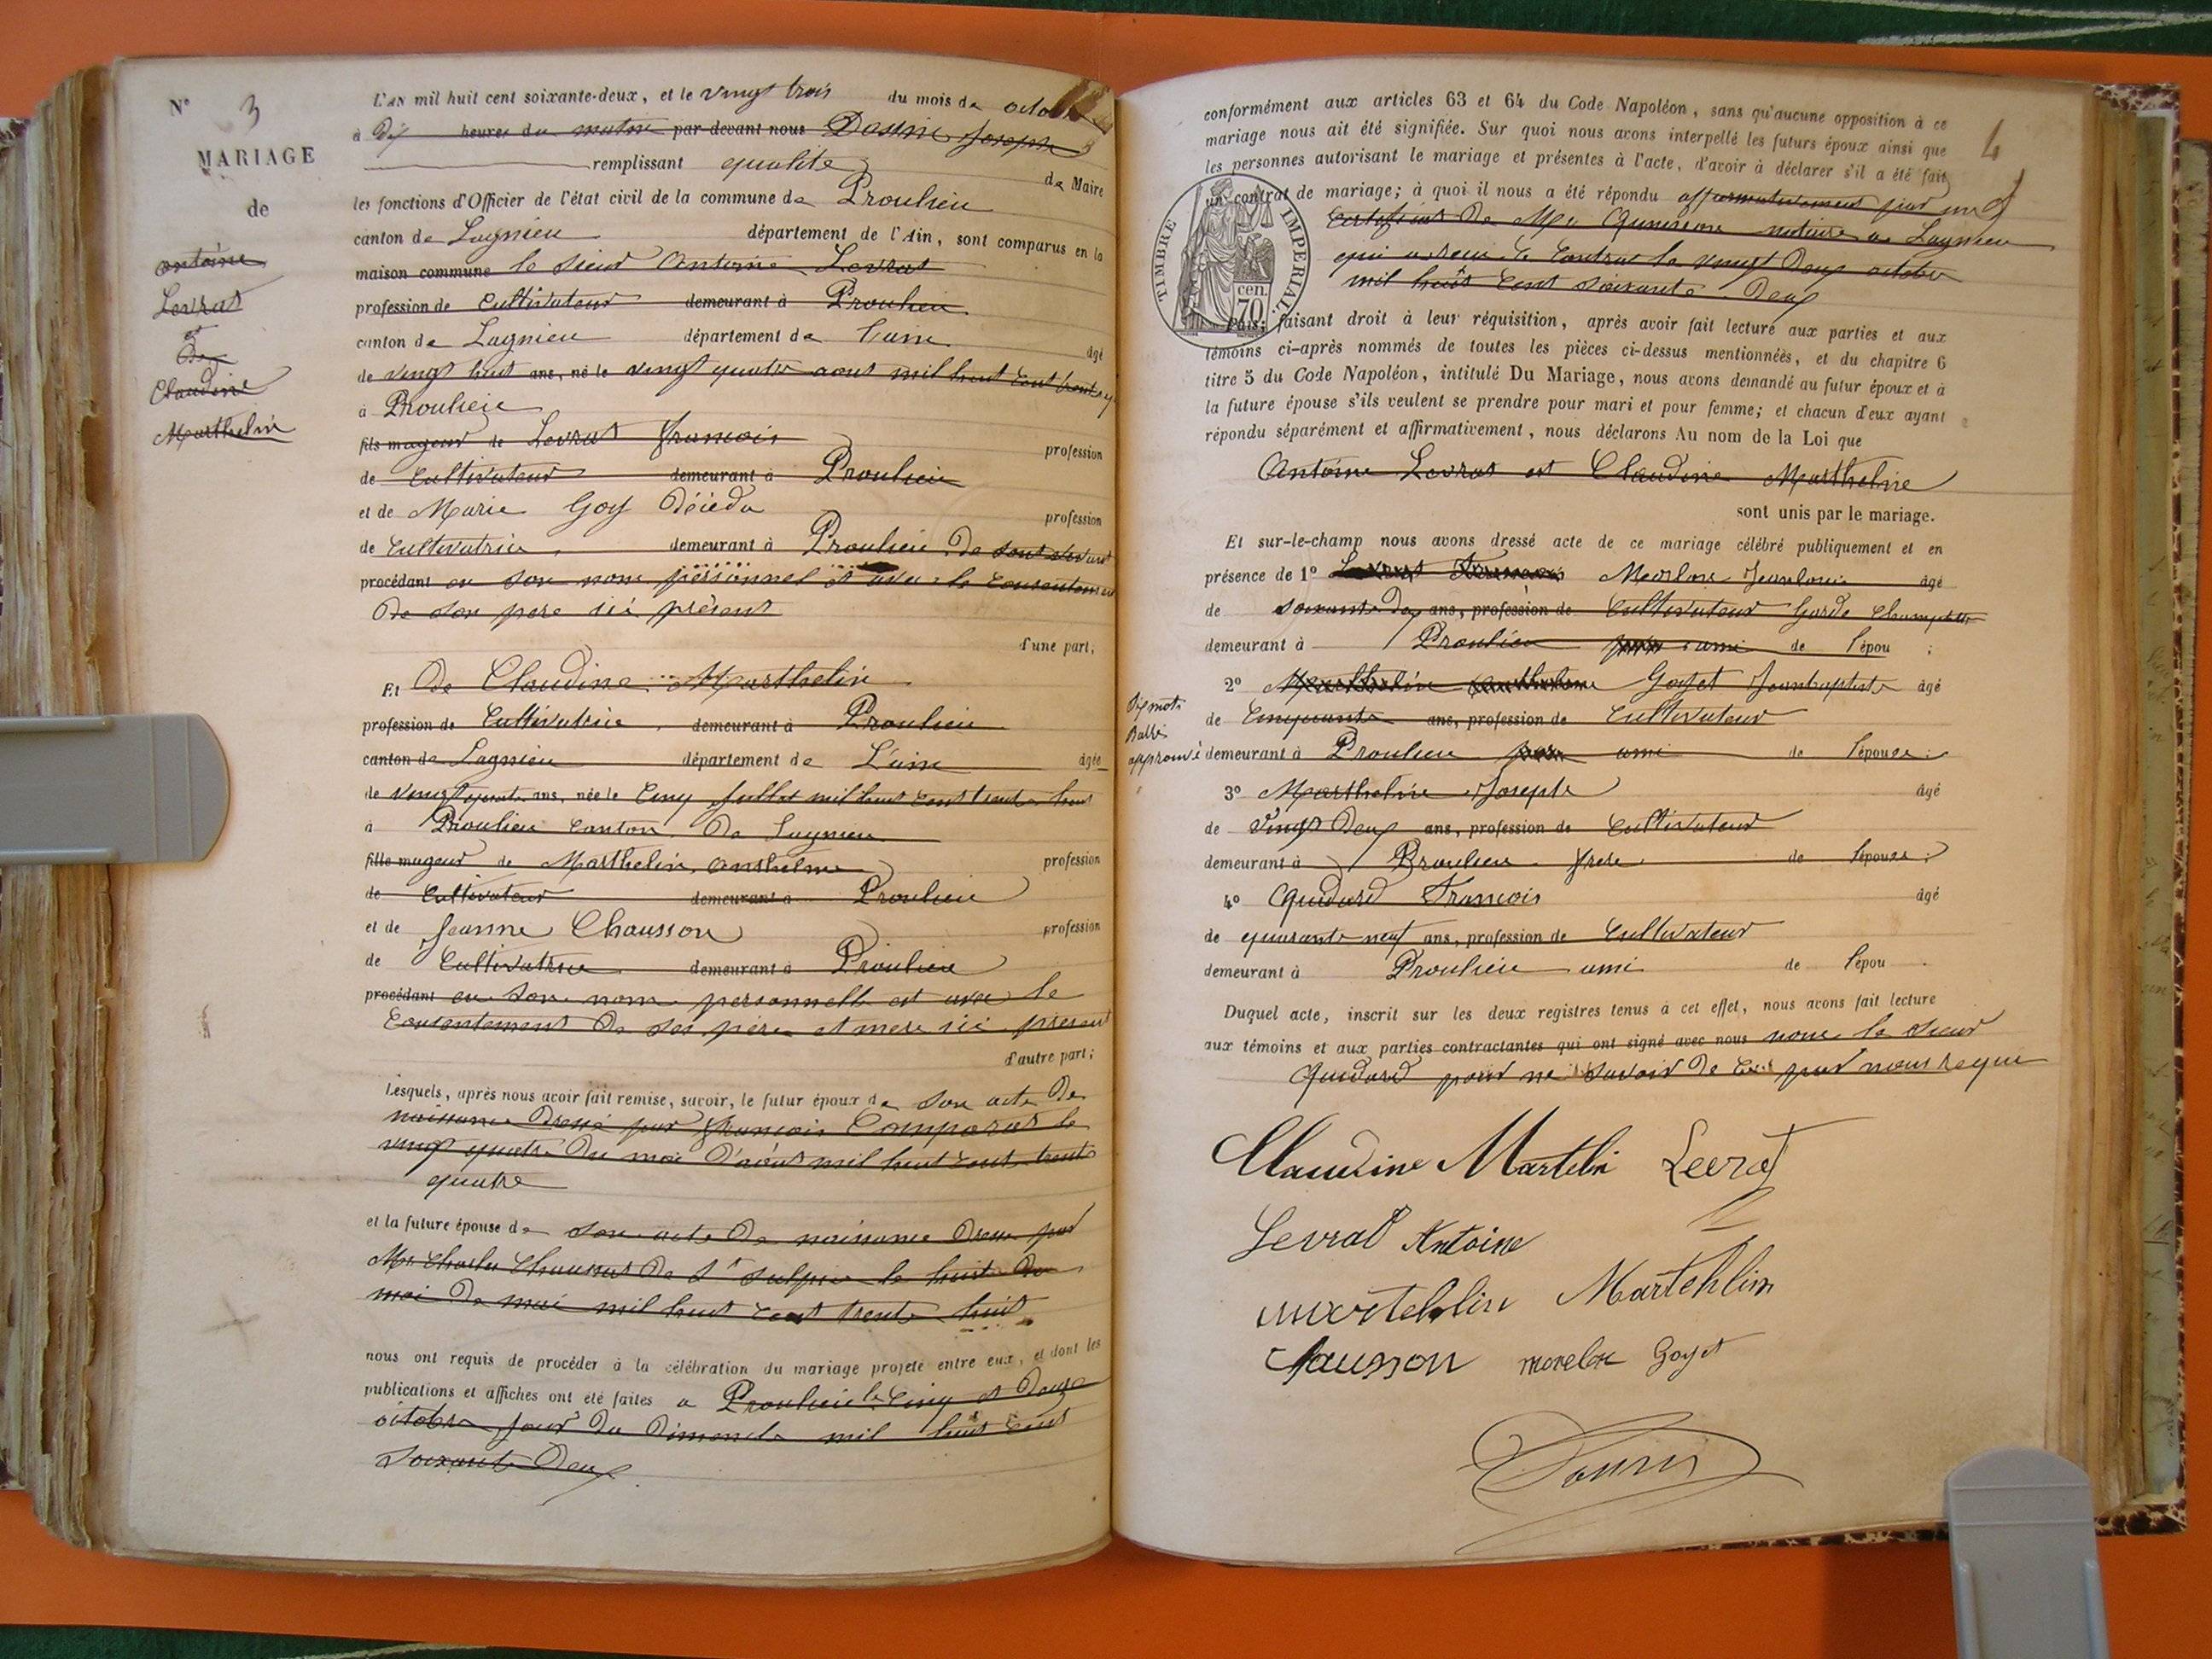 N° 3
MARIAGE
de
antoine
Levrat
et
De
Claudine
Marthelin
L'AN mil huit cent soixante-deux, et le vingt trois du mois de octobre
à dix heures du matin par-devant nous Joseph
remplissant qualité de Maire
les fonctions d'Officier de l'état civil de la commune de Proulieu
canton de Lagnieu département de l'Ain, sont comparus en la
maison commune le sieur Antoine Levrat
profession de Cultivateur demeurant à Proulieu
canton de Lagnieu département de l'ain âgé
de vingt huit ans, né le vingt quatre aout mil huit cent trente
à Proulieu
fils mageur de Levrat francois profession
de Cultivateur demeurant à Proulieu
et de Marie Goy profession
de Cultivatrice demeurant à Proulieu De
procédant en son nom personnel et avec le consentement
De son pere ici présent
d'une part;
Et De Claudine Marthelin
profession de Cultivatrice demeurant à Proulieu
canton de Lagnieu département de L'ain âgée
de vingt quatre ans, née le Cinq Juillet mil huit cent trente huit
à Proulieu Canton De Lagnieu
fille mageur de Marthelin, Anthelme profession
de Cultivateur demeurant à Proulieu
et de Jeanne Chausson profession
de Cultivatrice demeurant à Proulieu
procédant en son nom personnell et avec le
Consentement De ses père et mere ici présent
d'autre part;
Lesquels, après nous avoir fait remise, savoir, le futur époux de son acte De
naissance Dressé par francois Comparat le
vingt quatre Du moi D'aout mil huit cent trente
quatre
et la future épouse de son acte De naissance Dressé par
Mr Charles De St Sulpice le huit De
moi De mai mil huit cent trente huit
nous ont requis de procéder à la célébration du mariage projeté entre eux, et dont les
publications et affiches ont été faites a Proulieu le Cinq et Douze
octobre jour Du Dimanche mil huit cent
soixante Deux
4
conformément aux articles 63 et 64 du Code Napoléon, sans qu'aucune opposition à ce
mariage nous ait été signifiée. Sur quoi nous avons interpellé les futurs époux ainsi que
les personnes autorisant le mariage et présentes à l'acte, d'avoir à déclarer s'il a été fait
un contrat de mariage; à quoi il nous a été répondu affirmativement par un
Certificat De Mr notaire a Lagnieu
qui a recu le Contrat le vingt Deux octobre
mil huit cent soixante Deux
TIMBRE IMPERIAL
70 cen.
Puis, faisant droit à leur réquisition, après avoir fait lecture aux parties et aux
témoins ci-après nommés de toutes les pièces ci-dessus mentionnées, et du chapitre 6
titre 5 du Code Napoléon, intitulé Du Mariage, nous avons demandé au futur époux et à
la future épouse s'ils veulent se prendre pour mari et pour femme; et chacun d'eux ayant
répondu séparément et affirmativement, nous déclarons Au nom de la Loi que
Antoine Levrat et Claudine Marthelin
sont unis par le mariage.
Et sur-le-champ nous avons dressé acte de ce mariage célébré publiquement et en
présence de 1° Jeanlouis âgé
de soixante Dix ans, profession de Cultivateur Garde Champetre
demeurant à Proulieu ami de l'épou ;
2° Goyet Jeanbaptiste âgé
de Cinquante ans, profession de Cultivateur
demeurant à Proulieu ami de l'épouse ;
mots
Raÿés
approuvé
3° Marthelin Joseph âgé
de vingt Deux ans, profession de Cultivateur
demeurant à Proulieu frere de l'épouse ;
4° Quidard Francois âgé
de quarante neuf ans, profession de Cultivateur
demeurant à Proulieu ami de l'épou .
Duquel acte, inscrit sur les deux registres tenus à cet effet, nous avons fait lecture
aux témoins et aux parties contractantes qui ont signé avec nous non le sieur
Quidard pour ne savoir De ce par nous requi
Claudine Martelin Levrat
Levrat Antoine
martehlin Martehlin
Chausson morelon Goyet